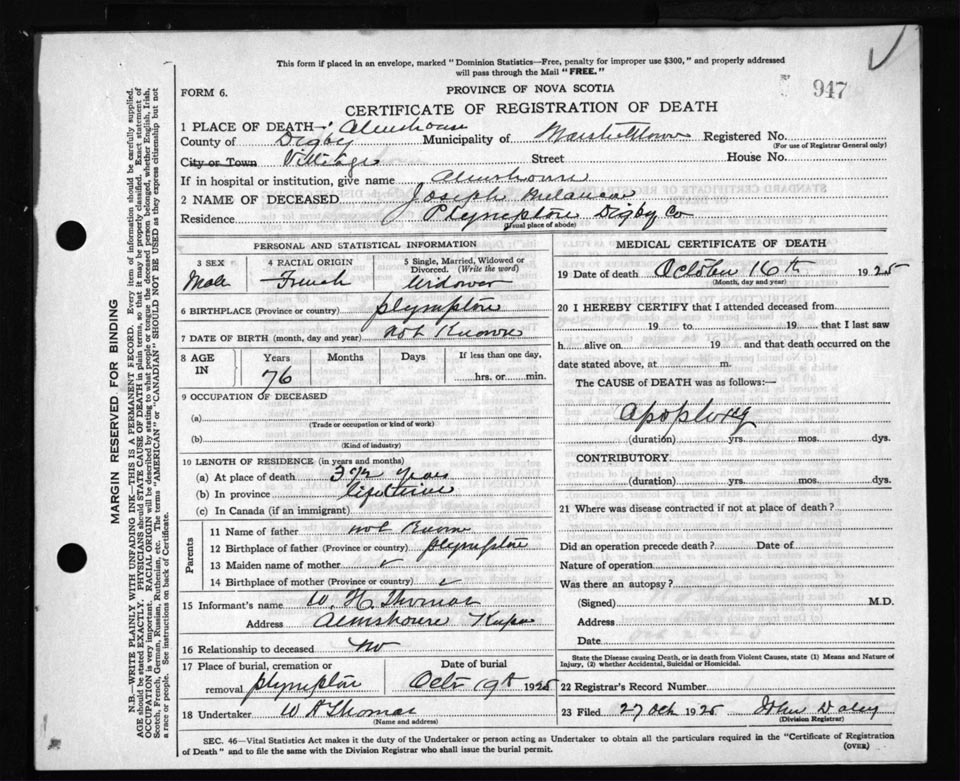 This form if placed in an envelope, marked "Dominion Statistics—Free, penalty for improper use $300," and properly addressed
will pass through the Mail "FREE."
FORM 6.
PROVINCE OF NOVA SCOTIA
947
CERTIFICATE OF REGISTRATION OF DEATH
1 PLACE OF DEATH— Almshouse
County of Digby Municipality of Registered No.
(For use of Registrar General only)
City or Town Village Street House No.
If in hospital or institution, give name Almshouse
2 NAME OF DECEASED Joseph Melanson
Residence Plympton Digby Co
(Usual place of abode)
PERSONAL AND STATISTICAL INFORMATION
3 SEX 4 RACIAL ORIGIN 5 Single, Married, Widowed or
Divorced. (Write the word)
Male French Widower
6 BIRTHPLACE (Province or country) plympton
7 DATE OF BIRTH (month, day and year) not Known
8 AGE IN Years Months Days If less than one day,
76 hrs. or min.
9 OCCUPATION OF DECEASED
(a)
(Trade or occupation or kind of work)
(b)
(Kind of industry)
10 LENGTH OF RESIDENCE (in years and months)
(a) At place of death 3½ years
(b) In province life time
(c) In Canada (if an immigrant)
Parents
11 Name of father not Known
12 Birthplace of father (Province or country) plympton
13 Maiden name of mother ✓
14 Birthplace of mother (Province or country) ✓
15 Informant's name W. H. Thomas
Address Almshouse Keeper
16 Relationship to deceased No
17 Place of burial, cremation or Date of burial
removal plympton Octr 19th 1925
18 Undertaker W H Thomas
(Name and address)
MEDICAL CERTIFICATE OF DEATH
19 Date of death October 16th 1925
(Month, day and year)
20 I HEREBY CERTIFY that I attended deceased from
19 to 19 that I last saw
h alive on 19 and that death occurred on the
date stated above, at m.
The CAUSE of DEATH was as follows:—
Apoplexy
(duration) yrs. mos. dys.
CONTRIBUTORY
(duration) yrs. mos. dys.
21 Where was disease contracted if not at place of death?
Did an operation precede death? Date of
Nature of operation
Was there an autopsy?
(Signed) M.D.
Address
Date
State the Disease causing Death, or in death from Violent Causes, state (1) Means and Nature of
Injury, (2) whether Accidental, Suicidal or Homicidal.
22 Registrar's Record Number
23 Filed 27 Oct 1925 John Daley
(Division Registrar)
SEC. 46—Vital Statistics Act makes it the duty of the Undertaker or person acting as Undertaker to obtain all the particulars required in the "Certificate of Registration
of Death" and to file the same with the Division Registrar who shall issue the burial permit.
(OVER)
MARGIN RESERVED FOR BINDING
N.B.—WRITE PLAINLY WITH UNFADING INK—THIS IS A PERMANENT RECORD. Every item of information should be carefully supplied.
AGE should be stated EXACTLY. PHYSICIANS should STATE CAUSE OF DEATH in plain terms, so that it may be properly classified. Exact statement of
OCCUPATION is very important. RACIAL ORIGIN will be described by stating to what people or tongue the deceased person belonged, whether English, Irish,
Scotch, French, German, Russian, Ruthenian, etc. The terms "AMERICAN" or "CANADIAN" SHOULD NOT BE USED as they express citizenship but not
a race or people. See instructions on back of Certificate.